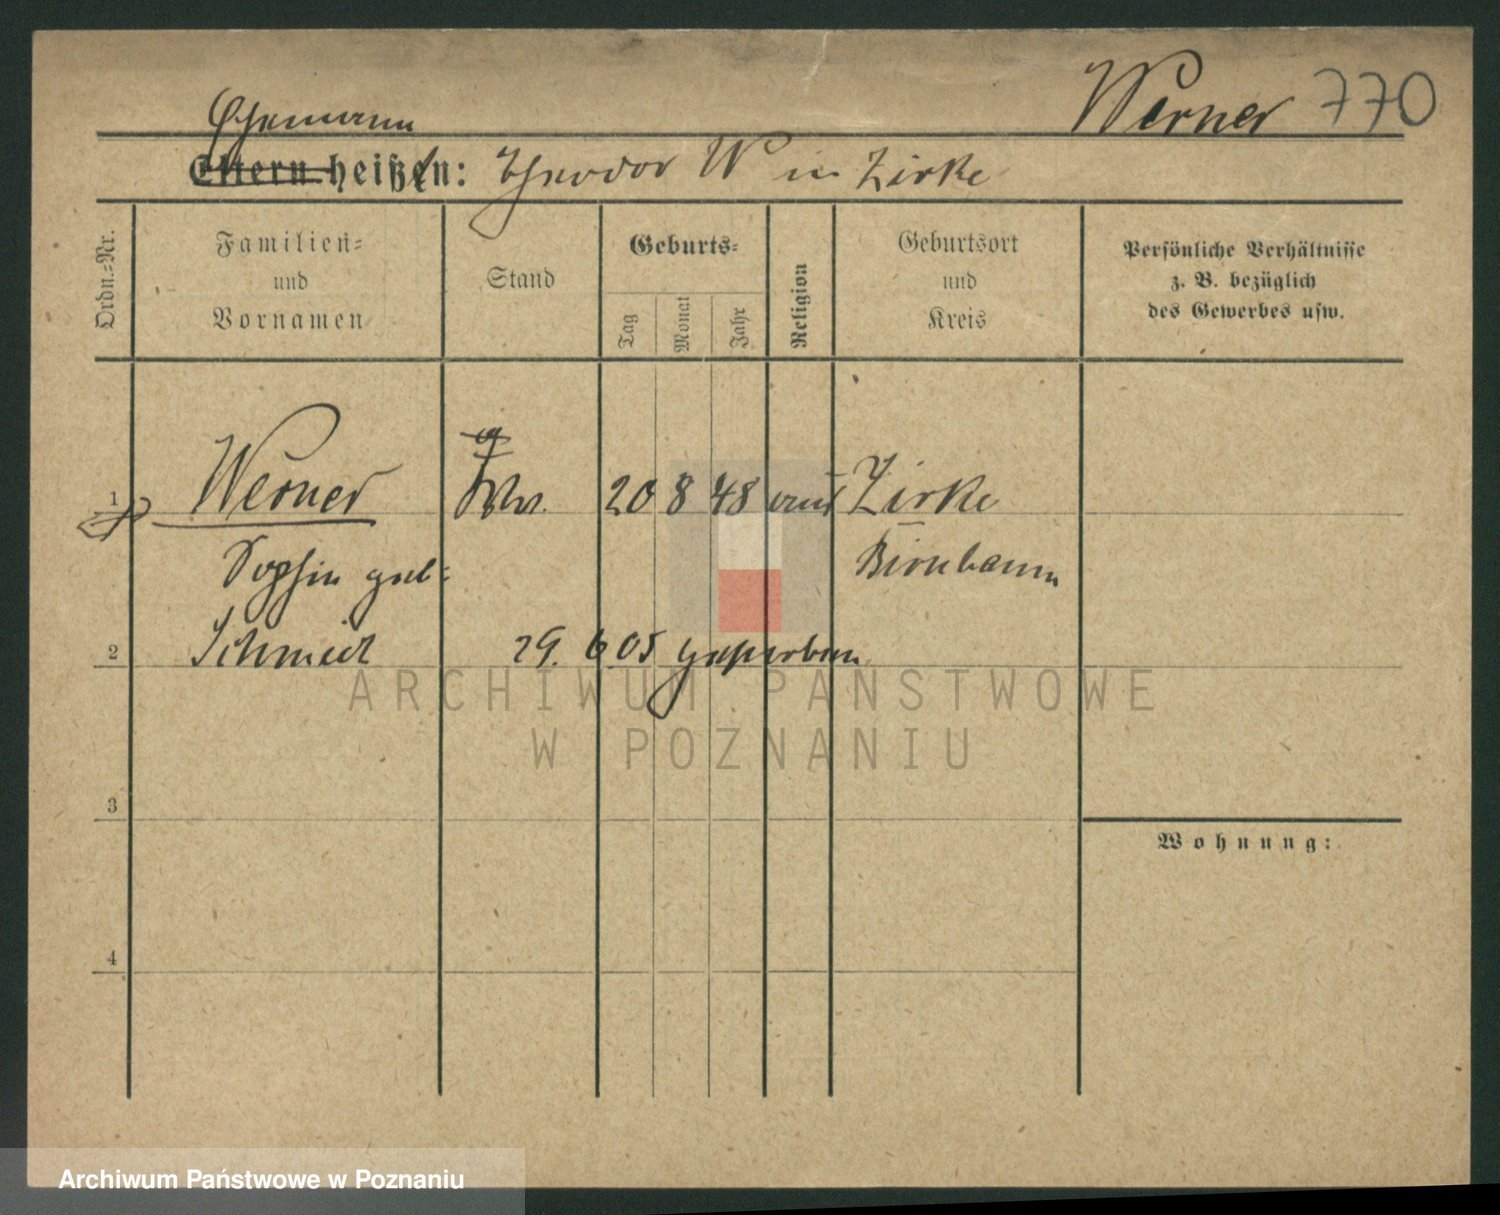 Werner 770
Ehemann
Eltern heißen: Theodor W in Zirke
Ordn.-Nr.
Familien-
und
Vornamen
Stand
Geburts-
Tag
Monat
Jahr
Religion
Geburtsort
und
Kreis
Persönliche Verhältnisse
z. B. bezüglich
des Gewerbes usw.
1 Werner Ww. 20 8 48 Zirke
Sophie geb: Birnbaum
2 Schmidt 29. 6 05 gestorben
ARCHIWUM PAŃSTWOWE
W POZNANIU
3
Wohnung:
4
Archiwum Państwowe w Poznaniu